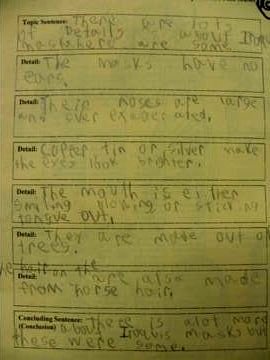 Topic Sentence: There are lots
of Details about Iroq
masks here are some.
Detail: The masks have no
ears.
Detail: Their noses are large
and over exaggerated.
Detail: Copper tin or silver make
the eyes look brighter.
Detail: The mouth is either
smiling or sticking
tongue out.
Detail: They are made out of
trees.
hair on the
Detail: are also made
from horse hair.
Concluding Sentence: There is alot more
(Conclusion) about Iroquis masks but
these were some.